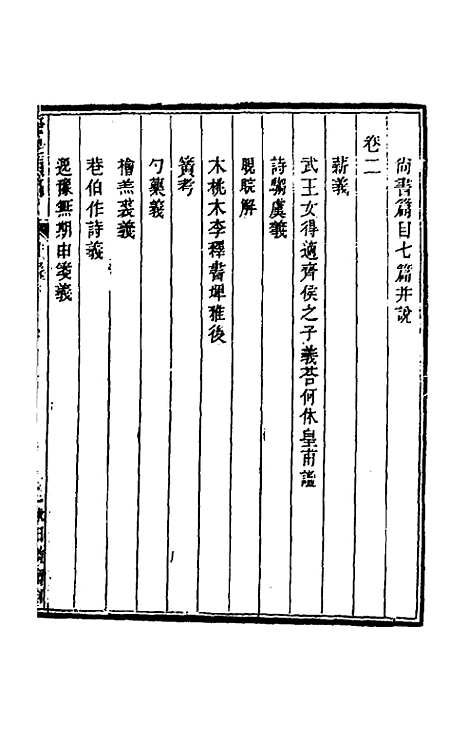 尚書篇目七篇并說
卷二
薪義
武王女得適齊侯之子義荅何休皇甫謐
詩騶虞義
睍睆解
木桃木李釋書埤雅後
簧考
勺藥義
檜羔裘義
巷伯作詩義
逸豫無期申箋義